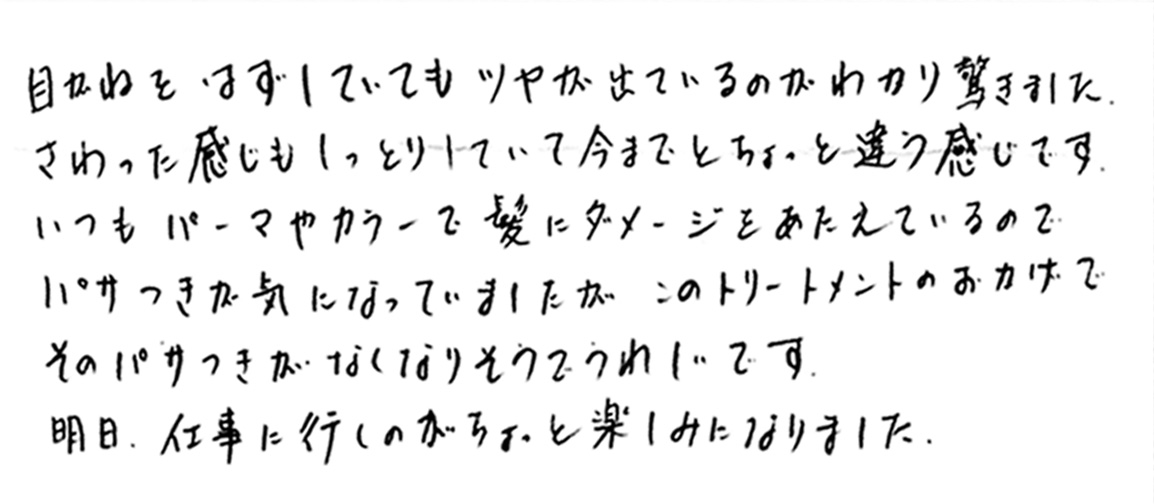 目がねをはずしていてもツヤが出ているのがわかり驚きました.
さわった感じもしっとりしていて今までとちょっと違う感じです.
いつもパーマやカラーで髪にダメージをあたえているので
パサつきが気になっていましたが このトリートメントのおかげで
そのパサつきがなくなりそうでうれしいです.
明日.仕事に行くのがちょっと楽しみになりました.